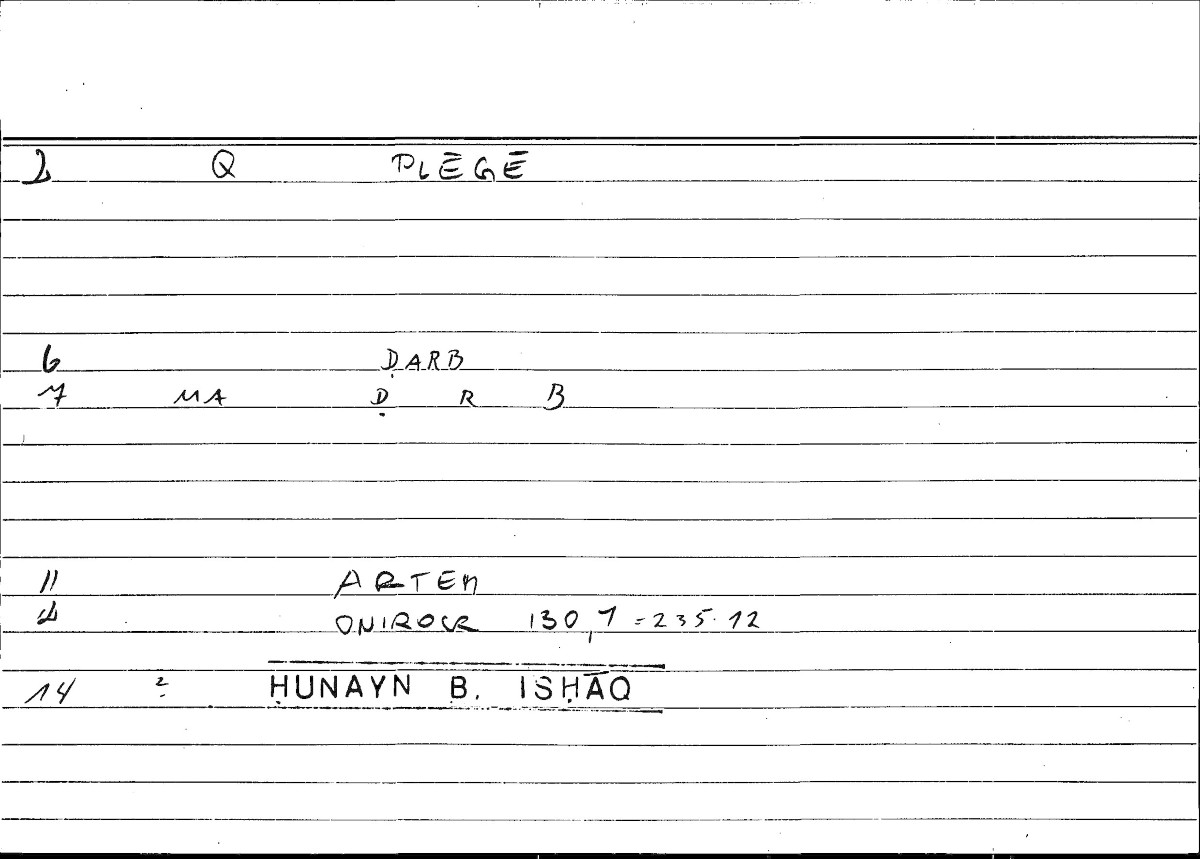 2 Q PLĒGĒ
6 ḌARB
7 MA Ḍ R B
11 ARTEM
12 ONIROCR 130,1 = 235.12
14 2 ḤUNAYN B. ISḤĀQ